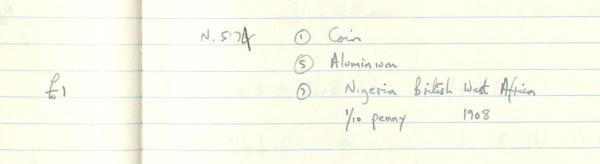 N. 5.74 ① Coin
⑤ Aluminium
£1 ⑦ Nigeria British West Africa
1/10 penny 1908